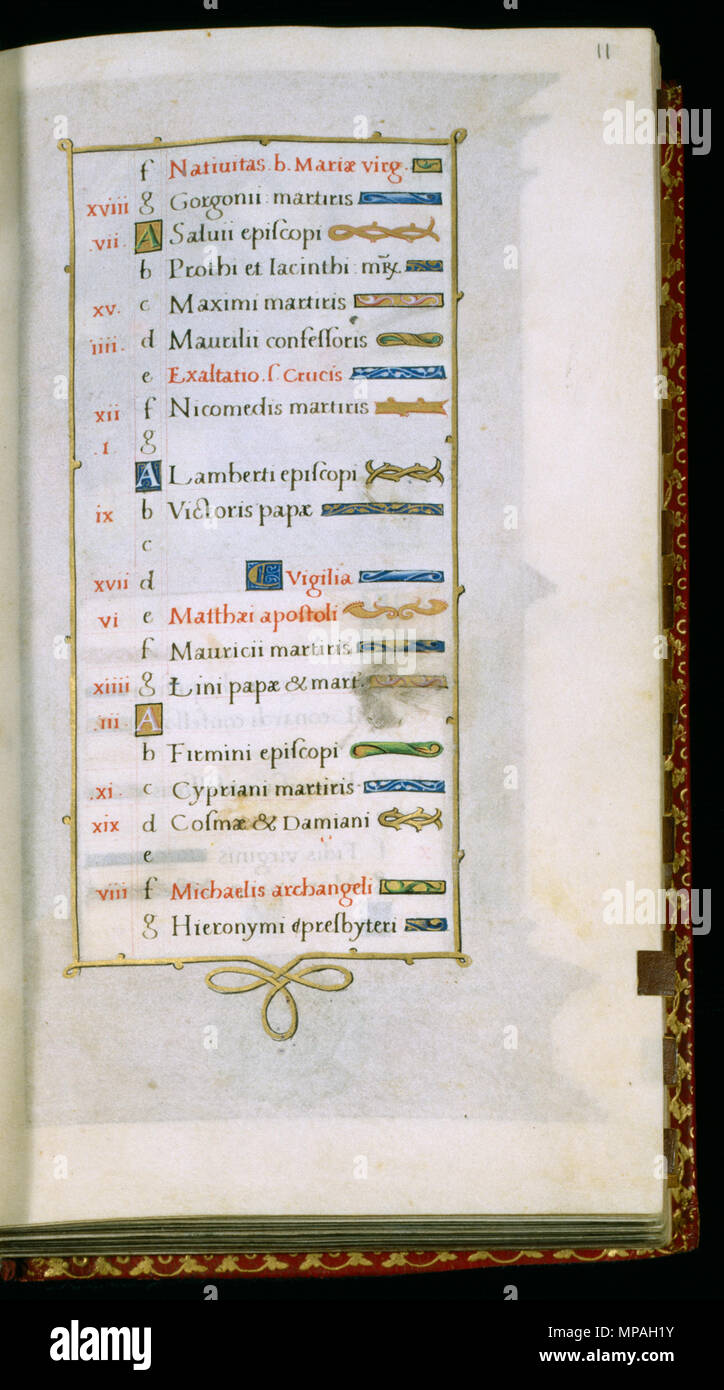 11
f Natiuitas. b. Mariæ virg.
xviii g Gorgonii martiris
.vii. A Saluii epiſcopi
b Prothi et Iacinthi mr̄x.
xv. c Maximi martiris
iiii. d Maurilii confeſſoris
e Exaltatio. ſ. Crucis
xii f Nicomedis martiris
.i g
A Lamberti epiſcopi
ix b Victoris papæ
c
xvii d C Vigilia
vi e Matthæi apoſtoli
f Mauricii martiris
xiiii g Lini papæ & mart.
.iii A
b Firmini epiſcopi
.xi. c Cypriani martiris
xix d Coſmæ & Damiani
e
viii f Michaelis archangeli
g Hieronymi preſbyteri
alamy
Image ID: MPAH1Y
www.alamy.com